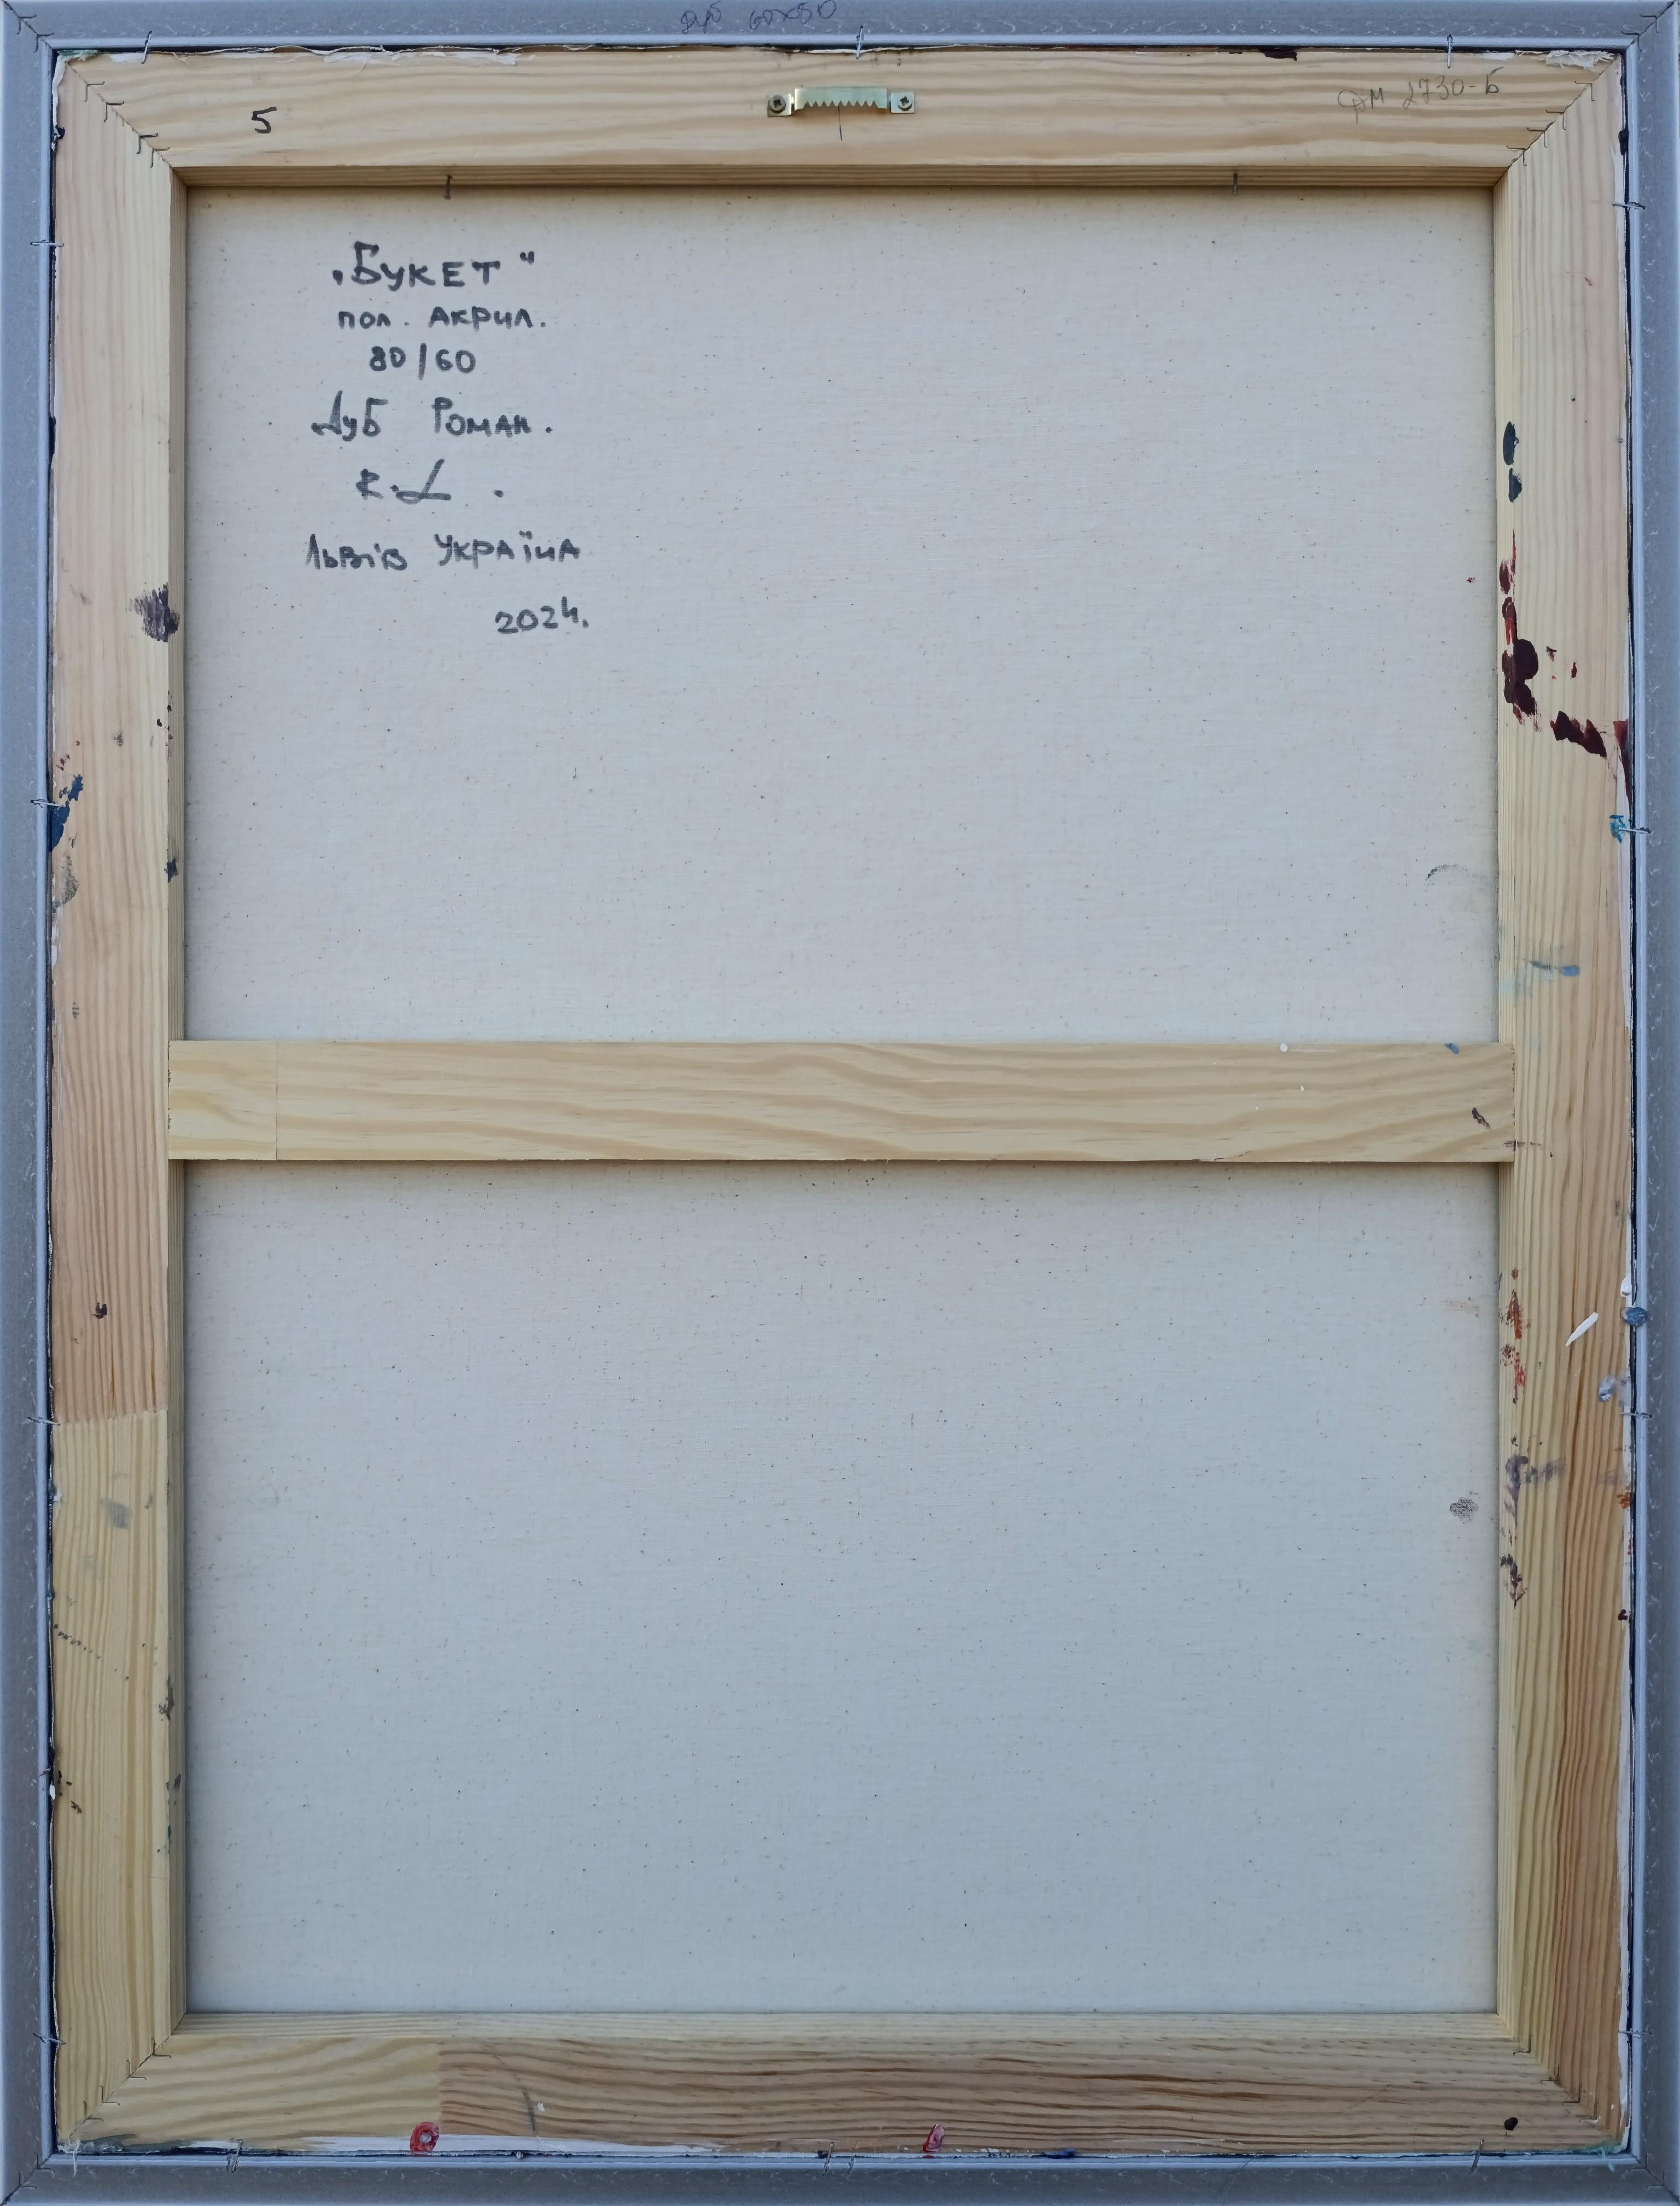 Дуб 60x80
5
ФМ 2730-Б
„Букет"
пол. Акрил.
80/60
Дуб Роман.
R.D.
Львів Україна
2024.